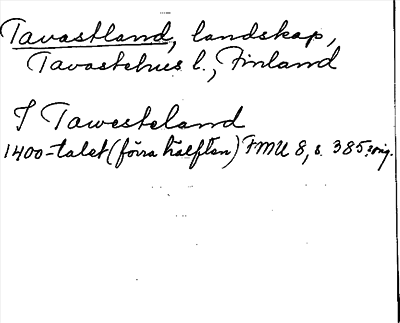 Tavastland, landskap,
Tavastehus l., Finland
I Tawesteland
1400-talet (förra hälften) FMU 8, s. 385. orig.